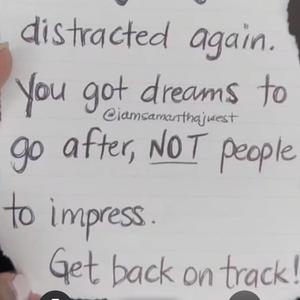 distracted again.
You got dreams to
@iamsamanthajwest
go after, NOT people
to impress.
Get back on track!